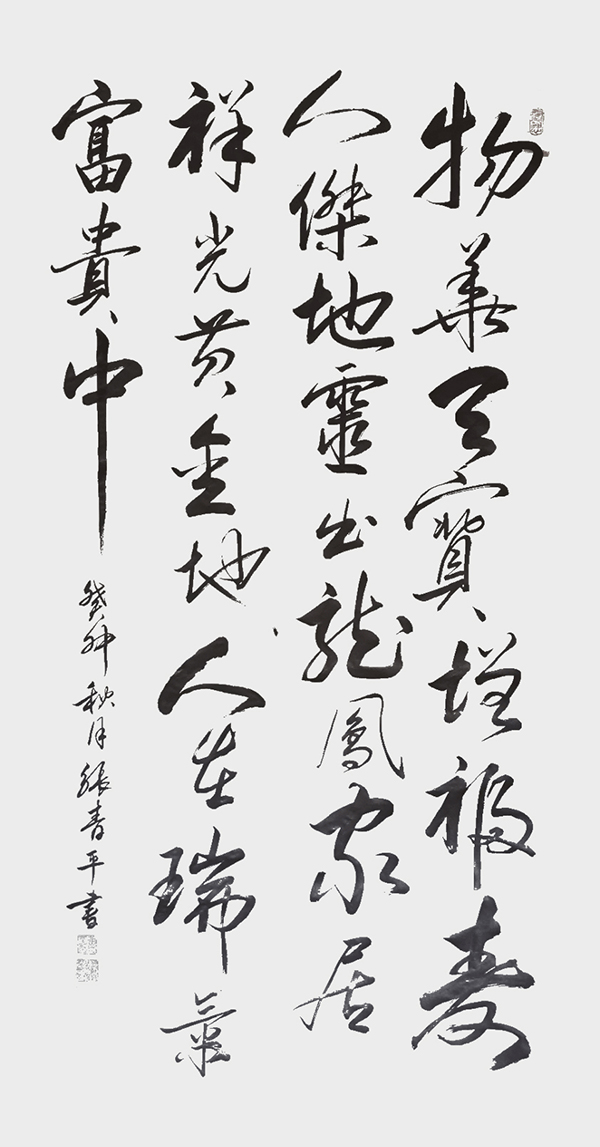 物華天寶增福壽
人傑地靈出龍鳳家居
祥光黄金地人在瑞氣
富貴中
癸卯秋月張青平書